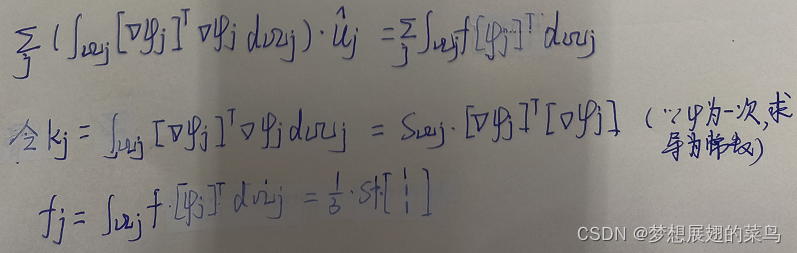 ∑_j (∫_{Ωj} [∇φj]^T ∇φj dΩj) · ûj = ∑_j ∫_{Ωj} f [φj]^T dΩj
令 kj = ∫_{Ωj} [∇φj]^T ∇φj dΩj = S_{Ωj} · [∇φj]^T [∇φj] (∵φ为一次,求
导为常数)
fj = ∫_{Ωj} f · [φj]^T dΩj = 1/3 · Sf [1 1 1]
CSDN @梦想展翅的菜鸟